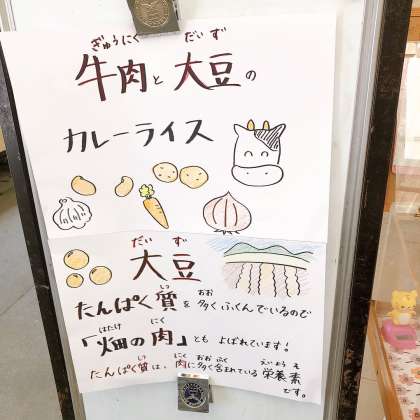 ぎゅうにく だいず
牛肉と大豆の
カレーライス
だいず
大豆
しつ おお
たんぱく質を多くふくんでいるので
はたけ にく
「畑の肉」とも よばれています!
しつ にく おお ふく えいようそ
たんぱく質は、肉に多く含まれている栄養素
です。